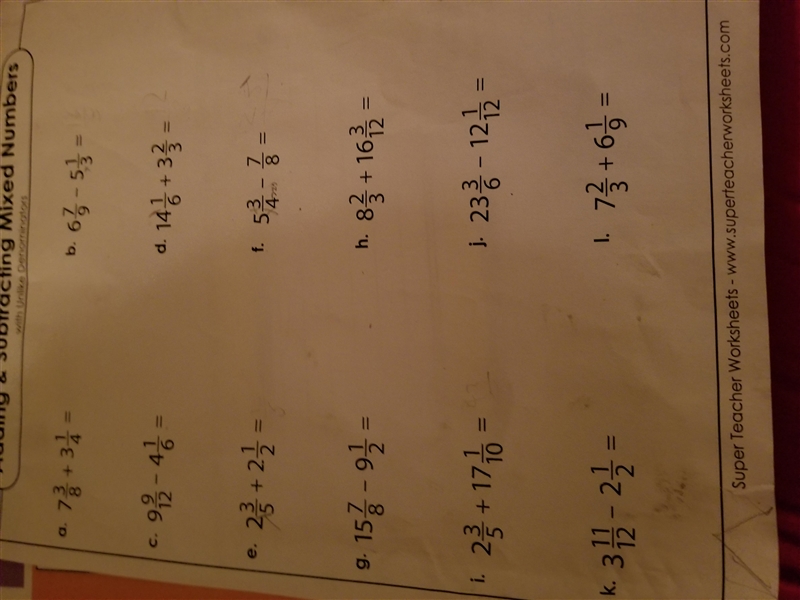 Adding & Subtracting Mixed Numbers
with Unlike Denominators
a. 7 3/8 + 3 1/4 =
b. 6 7/9 − 5 1/3 =
c. 9 9/12 − 4 1/6 =
d. 14 1/6 + 3 2/3 =
e. 2 3/5 + 2 1/2 =
f. 5 3/4 − 7/8 =
g. 15 7/8 − 9 1/2 =
h. 8 2/3 + 16 3/12 =
i. 2 3/5 + 17 1/10 =
j. 23 3/6 − 12 1/12 =
k. 3 11/12 − 2 1/2 =
l. 7 2/3 + 6 1/9 =
Super Teacher Worksheets - www.superteacherworksheets.com